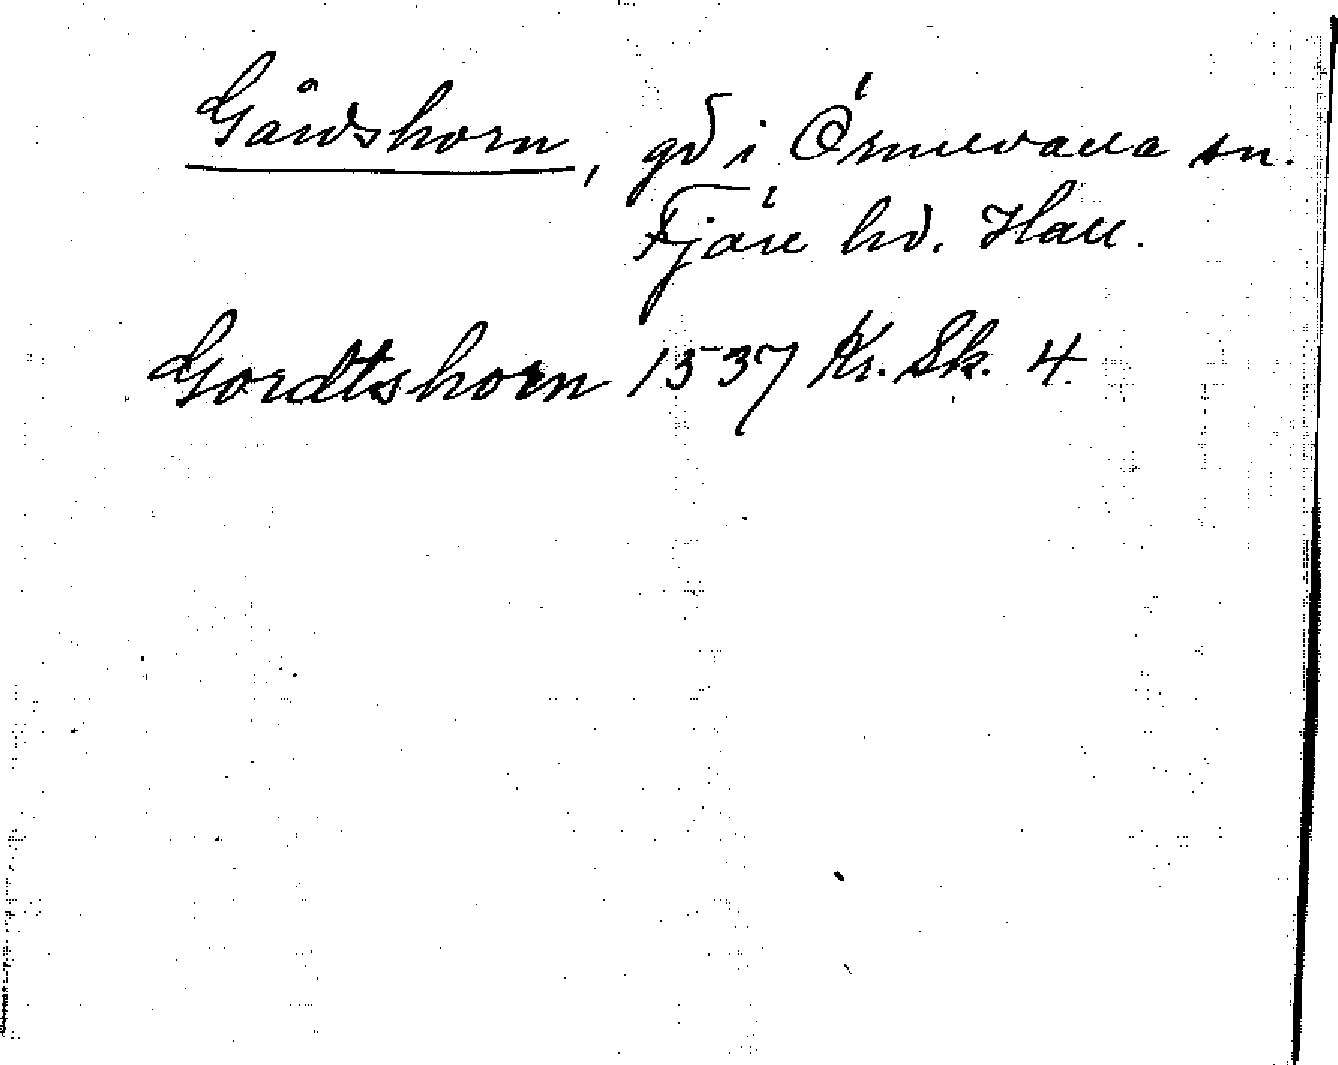 Gårdshorn, gd i Örmevalla sn.
Fjäre hd. Hall.
Gordtshorn 1537 Kr. Sk. 4